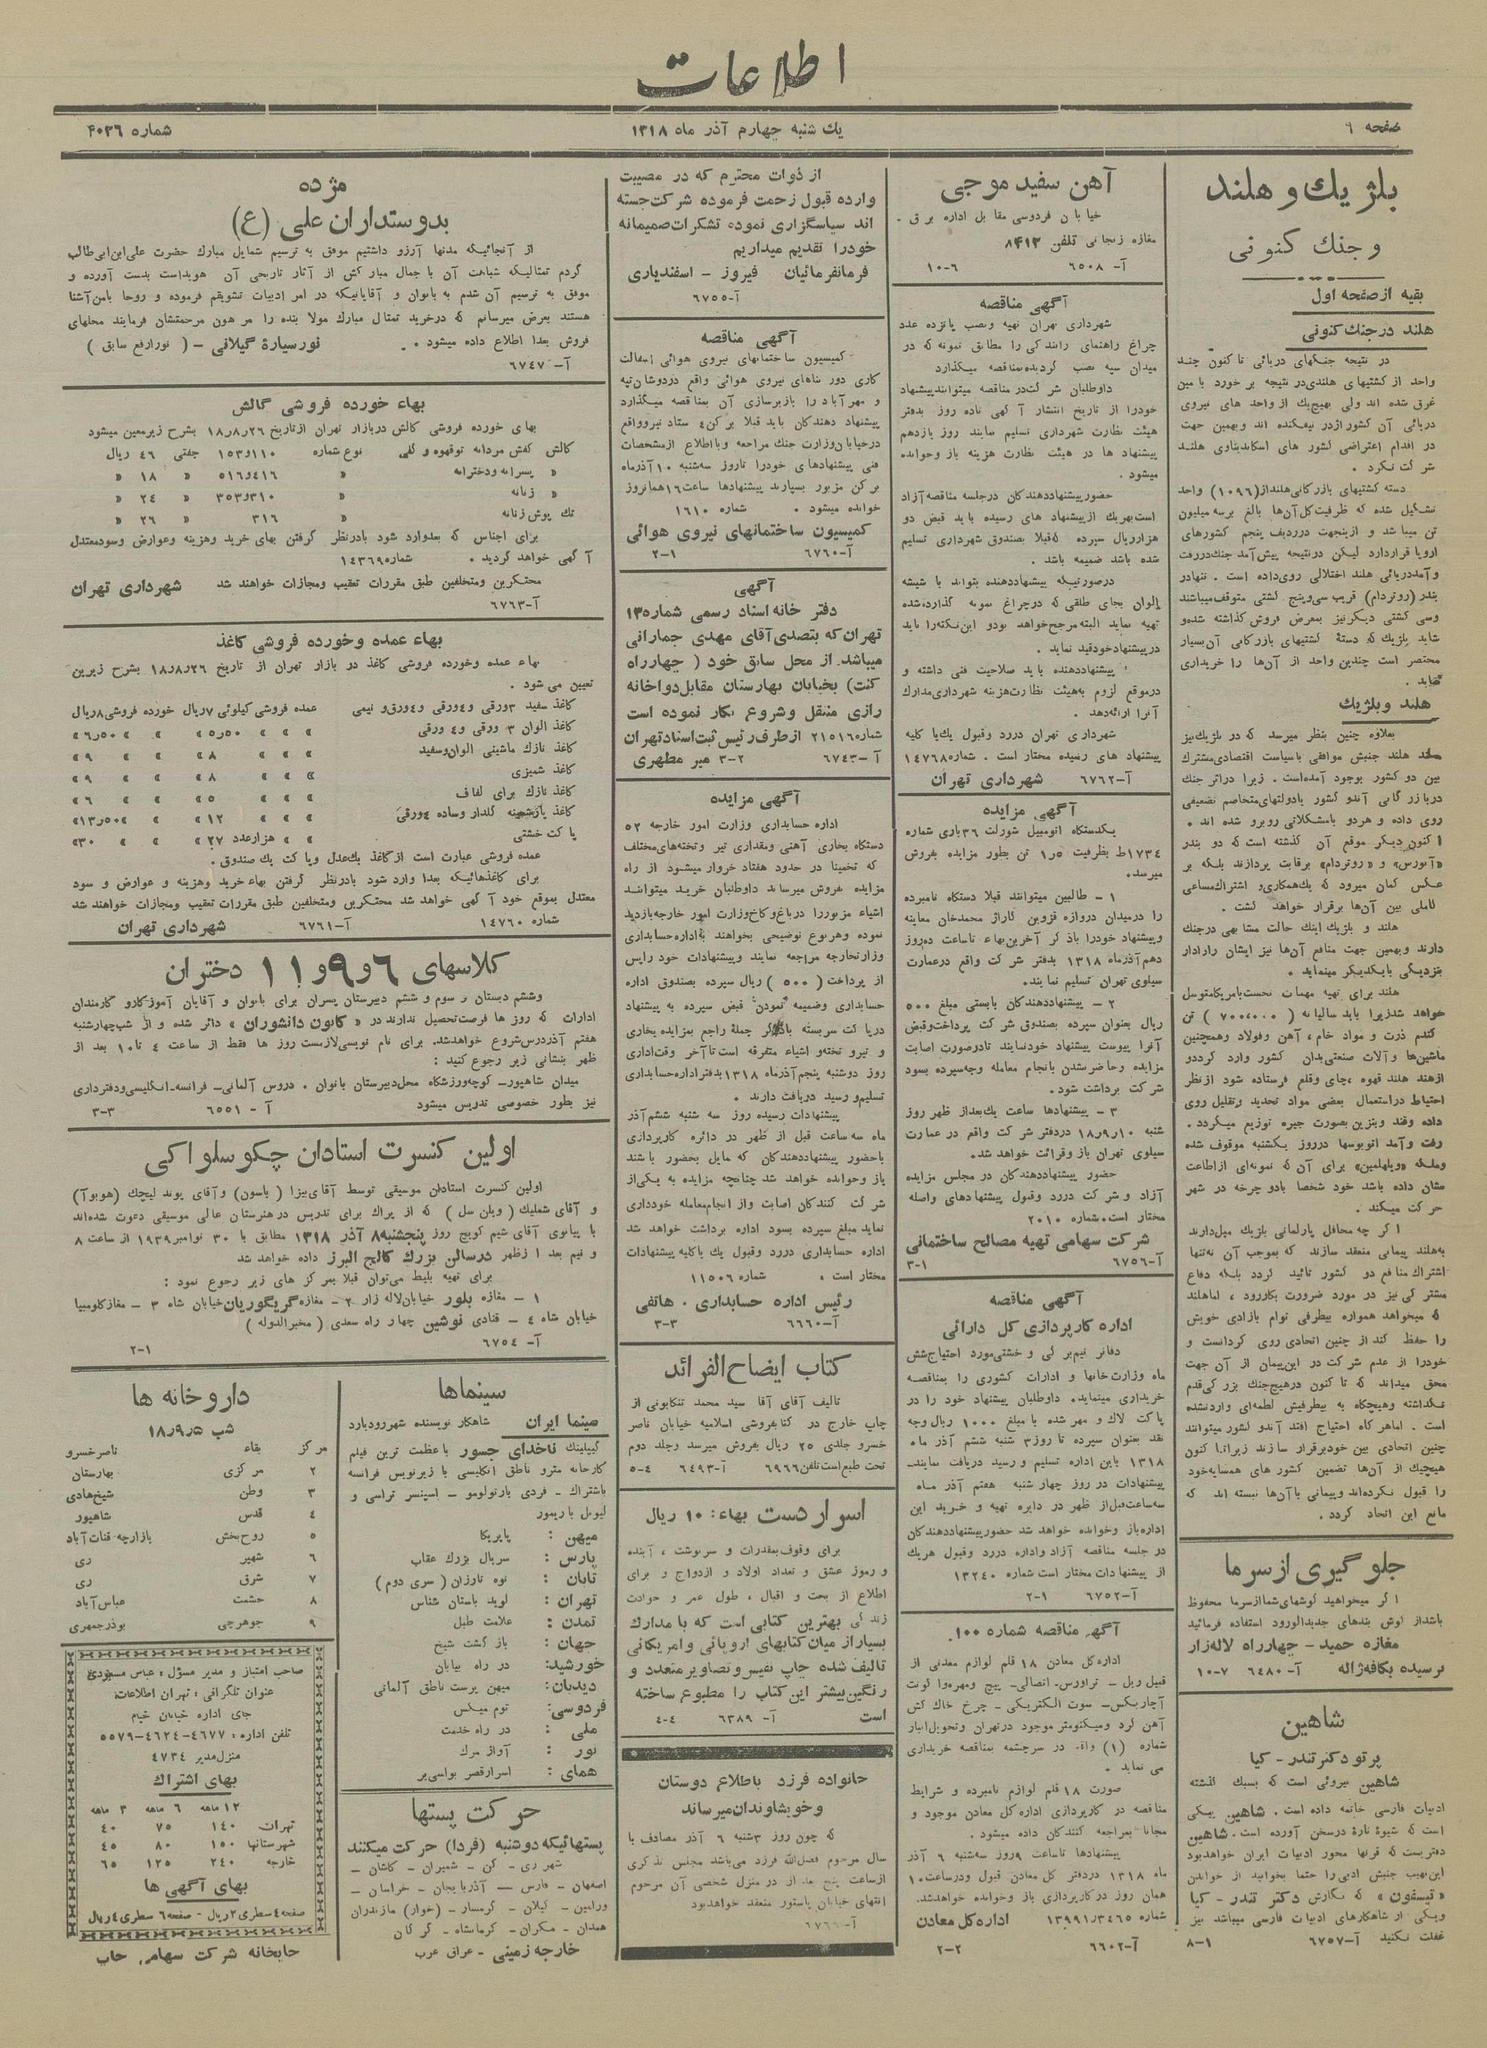 اطلاعات
صفحه ۶
یک شنبه چهارم آذر ماه ۱۳۱۸
شماره ۴۰۲۶
بلژیک و هلند
و جنک کنونی
بقیه از صفحه اول
هلند در جنک کنونی
در نتیجه جنگهای دریائی تا کنون چند
واحد از کشتیهای هلندی در نتیجه بر خورد با مین
غرق شده اند ولی بهیچیک از واحد های نیروی
دریائی آن کشور اژدر نیفکنده اند و بهمین جهت
در اقدام اعتراضی کشور های اسکاندیناوی هلند
شرکت نکرد .
دسته کشتیهای بازرگانی هلند از (۱۰۹۶) واحد
تشکیل شده که ظرفیت کل آن‌ها بالغ برسه میلیون
تن میباشد و از اینجهت در ردیف پنجم کشورهای
اروپا قرار دارد لیکن در نتیجه پیش آمد جنک در رفت
و آمد دریائی هلند اختلالی روی داده است . تنها در
بندر (روتردام) قریب سی و پنج کشتی متوقف میباشند
وسی کشتی دیگر نیز بمعرض فروش گذاشته شده و
شاید بلژیک که دستهٔ کشتیهای بازرگانی آن بسیار
مختصر است چندین واحد از آن‌ها را خریداری
نماید .
هلند و بلژیک
بعلاوه چنین بنظر میرسد که در بلژیک نیز
مانند هلند جنبش موافقی با سیاست اقتصادی مشترک
بین دو کشور بوجود آمده است . زیرا در اثر جنک
در بازرگانی آندو کشور با دولتهای متخاصم تضعیفی
روی داده و هر دو با مشکلاتی روبرو شده اند .
اکنون دیگر موقع آن گذشته است که دو بندر
«آنورس» و «روتردام» برقابت پردازند بلکه بر
عکس گمان میرود که یک همکاری و اشتراک مساعی
کاملی بین آن‌ها برقرار خواهد گشت .
هلند و بلژیک اینک حالت مشابهی در جنک
دارند و بهمین جهت منافع آن‌ها نیز ایشان را وادار
بنزدیکی بایکدیگر مینماید .
هلند برای تهیه مهمات نخست بامریکا متوسل
خواهد شد زیرا باید سالیانه (۷۰۰،۰۰۰) تن
گندم ذرت و مواد خام، آهن و فولاد و همچنین
ماشین‌ها و آلات صنعتی بدان کشور وارد گردد و
از هند هلند قهوه ، چای و قلع فرستاده شود از نظر
احتیاط در استعمال بعضی مواد تحدید و تقلیل روی
داده و قند و بنزین بصورت جیره توزیع میگردد .
رفت و آمد اتوبوسها در روز یکشنبه موقوف شده
و ملکه «ویلهلمین» برای آن که نمونه‌ای از اطاعت
نشان داده باشد خود شخصا بادو چرخه در شهر
حرکت میکند .
اگر چه محافل پارلمانی بلژیک میل دارند
به هلند پیمانی منعقد سازند که بموجب آن نه تنها
اشتراک منافع دو کشور تائید گردد بلکه دفاع
مشترکی نیز در مورد ضرورت بکار رود ، اما هلند
که میخواهد همواره بیطرفی توام بازادی خویش
را حفظ کند از چنین اتحادی روی گردانست و
خود را از عدم شرکت در این پیمان از آن جهت
محق میداند که تا کنون در هیچ جنک بزرگی قدم
نگذاشته و هیچگاه به بیطرفیش لطمه‌ای وارد نشده
است . اما هر گاه احتیاج افتد آندو کشور میتوانند
چنین اتحادی بین خود برقرار سازند زیرا تا کنون
هیچیک از آن‌ها تضمین کشور های همسایه خود
را قبول نکرده‌اند و پیمانی با آن‌ها نبسته اند که
مانع این اتحاد گردد .
جلو گیری از سرما
اگر میخواهید گوشهای شما از سرما محفوظ
باشد از گوش بندهای جدیدالورود استفاده فرمائید
مغازه حمید – چهار راه لاله‌زار
نرسیده بکافه ژاله آ–۶۴۸۰ ۷–۱۰
شاهین
پرتو دکتر تندر – کیا
شاهین نیروئی است که بسبک گذشته
ادبیات فارسی خاتمه داده است . شاهین پیکی
است که شیوهٔ تازهٔ در سخن آورده است. شاهین
دفتریست که قرنها محور ادبیات ایران خواهد بود
این نهیب جنبش ادبی را حتما بخوانید از خواندن
« تیسفون » که نگارش دکتر تندر – کیا
و یکی از شاهکارهای ادبیات فارسی میباشد نیز
غفلت نکنید آ–۶۷۵۷ ۱–۸
آهن سفید موجی
خیابان فردوسی مقابل اداره برق .
مغازه زنجانی تلفن ۸۴۱۳
آ– ۶۵۰۸ ۶–۱۰
آگهی مناقصه
شهرداری تهران تهیه و نصب پانزده عدد
چراغ راهنمای رانندگی را مطابق نمونه که در
میدان سپه نصب گردیده بمناقصه میگذارد
داوطلبان شرکت در مناقصه میتوانند پیشنهاد
خود را از تاریخ انتشار آگهی تا ده روز بدفتر
هیئت نظارت شهرداری تسلیم نمایند روز یازدهم
پیشنهاد ها در هیئت نظارت هزینه باز و خوانده
میشود .
حضور پیشنهاد دهندگان در جلسه مناقصه آزاد
است بهر یک از پیشنهاد های رسیده باید قبض دو
هزار ریال سپرده که قبلا بصندوق شهرداری تسلیم
شده باشد ضمیمه باشد .
در صورتیکه پیشنهاد دهنده بتواند با شیشه
الوان بجای طلقی که در چراغ نمونه گذارده شده
تهیه نماید البته مرجح خواهد بود و این نکته را باید
در پیشنهاد خود قید نماید .
پیشنهاد دهنده باید صلاحیت فنی داشته و
در موقع لزوم به هیئت نظارت هزینه شهرداری مدارک
آنرا ارائه دهد .
شهرداری تهران در رد و قبول یک یا کلیه
پیشنهاد های رسیده مختار است . شماره ۱۴۷۶۸
آ–۶۷۶۲ شهرداری تهران
آگهی مزایده
یکدستگاه اتومبیل شورلت ۳۶ باری شماره
۱۷۳۴ط بظرفیت ۱٫۵ تن بطور مزایده بفروش
میرسد.
۱ – طالبین میتوانند قبلا دستگاه نامبرده
را در میدان دروازه قزوین گاراژ محمدخان معاینه
و پیشنهاد خود را با ذکر آخرین بهاء تا ساعت ده روز
دهم آذر ماه ۱۳۱۸ بدفتر شرکت واقع در عمارت
سیلوی تهران تسلیم نمایند.
۲ – پیشنهاد دهندگان بایستی مبلغ ۵۰۰
ریال بعنوان سپرده بصندوق شرکت پرداخت و قبض
آنرا پیوست پیشنهاد خود نمایند تا در صورت اصابت
مزایده و حاضر نشدن بانجام معامله وجه سپرده بسود
شرکت برداشت شود .
۳ – پیشنهادها ساعت یک بعد از ظهر روز
شنبه ۱۸٫۹٫۱۰ در دفتر شرکت واقع در عمارت
سیلوی تهران باز و قرائت خواهد شد.
حضور پیشنهاد دهندگان در مجلس مزایده
آزاد و شرکت در رد و قبول پیشنهادهای واصله
مختار است . شماره ۲۰۱۰
شرکت سهامی تهیه مصالح ساختمانی
آ–۶۷۵۶ ۱–۳
آگهی مناقصه
اداره کارپردازی کل دارائی
دفاتر نیم برگی و خشتی مورد احتیاج شش
ماه وزارت خانها و ادارات کشوری را بمناقصه
خریداری مینماید. داوطلبان پیشنهاد خود را در
پاکت لاک و مهر شده با مبلغ ۱۰۰۰ ریال وجه
نقد بعنوان سپرده تا روز ۳ شنبه ششم آذر ماه
۱۳۱۸ باین اداره تسلیم و رسید دریافت نمایند–
پیشنهادات در روز چهار شنبه هفتم آذر ماه
سه ساعت قبل از ظهر در دایره تهیه و خرید این
اداره باز و خوانده خواهد شد حضور پیشنهاد دهندگان
در جلسه مناقصه آزاد و اداره در رد و قبول هر یک
از پیشنهادات مختار است شماره ۱۳۲۴۰
آ–۶۷۵۲ ۱–۲
آگهی مناقصه شماره ۱۰۰
اداره کل معادن ۱۸ قلم لوازم معدنی از
قبیل ریل – تراورس – اتصالی – پیچ و مهره واگونت
آچار بکس – سوت الکتریکی – چرخ خاک کش
آهن گرد و میکنومتر موجود در تهران و تحویل انبار
شماره (۱) واقع در سرچشمه بمناقصه خریداری
می نماید .
صورت ۱۸ قلم لوازم نامبرده و شرایط
مناقصه در کارپردازی اداره کل معادن موجود و
مجانا بمراجعه کنندگان داده میشود .
پیشنهادها تا ساعت ۹ روز سه شنبه ۶ آذر
ماه ۱۳۱۸ در دفتر کل معادن قبول و در ساعت ۱۰
همان روز در کارپردازی باز و خوانده خواهد شد.
شماره ۱۳۹۹۱٫۳۴۶۵ اداره کل معادن
آ–۶۶۰۲ ۲–۲
از ذوات محترم که در مصیبت
وارده قبول زحمت فرموده شرکت جسته
اند سپاسگزاری نموده تشکرات صمیمانه
خود را تقدیم میداریم
فرمانفرمائیان فیروز – اسفندیاری
آ–۶۷۵۵
آگهی مناقصه
کمیسیون ساختمانهای نیروی هوائی اسفالت
کاری دور بناهای نیروی هوائی واقع در دوشان تپه
و مهر آباد را باز برسازی آن بمناقصه میگذارد
پیشنهاد دهندگان باید قبلا برکن ۴ ستاد نیرو واقع
در خیابان وزارت جنک مراجعه و با اطلاع از مشخصات
فنی پیشنهادهای خود را تا روز سه شنبه ۱۰ آذر ماه
برکن مزبور بسپارند پیشنهادها ساعت ۱۶ همانروز
خوانده میشود . شماره ۱۶۱۰
کمیسیون ساختمانهای نیروی هوائی
آ–۶۷۶۰ ۱–۲
آگهی
دفتر خانه اسناد رسمی شماره ۱۳
تهران که بتصدی آقای مهدی جمارانی
میباشد. از محل سابق خود ( چهار راه
کنت) بخیابان بهارستان مقابل دواخانه
رازی منتقل و شروع بکار نموده است
شماره ۲۱۵۱۶ از طرف رئیس ثبت اسناد تهران
آ–۶۷۴۳ ۲–۳ میر مطهری
آگهی مزایده
اداره حسابداری وزارت امور خارجه ۵۲
دستگاه بخاری آهنی و مقداری تیر و تخته‌های مختلف
که تخمینا در حدود هفتاد خروار میشود از راه
مزایده بفروش میرساند داوطلبان خرید میتوانند
اشیاء مزبور را در باغ و کاخ وزارت امور خارجه بازدید
نموده و هر نوع توضیحی بخواهند به اداره حسابداری
وزارتخارجه مراجعه نمایند و پیشنهادات خود را پس
از پرداخت ( ۵۰۰ ) ریال سپرده بصندوق اداره
حسابداری و ضمیمه نمودن قبض سپرده به پیشنهاد
در پاکت سربسته با ذکر جملهٔ راجع بمزایده بخاری
و تیر و تخته و اشیاء متفرقه است تا آخر وقت اداری
روز دوشنبه پنجم آذر ماه ۱۳۱۸ بدفتر اداره حسابداری
تسلیم و رسید دریافت دارند .
پیشنهادات رسیده روز سه شنبه ششم آذر
ماه سه ساعت قبل از ظهر در دائره کارپردازی
با حضور پیشنهاد دهندگان که مایل بحضور باشند
باز و خوانده خواهد شد چنانچه مزایده به یکی از
شرکت کنندگان اصابت و از انجام معامله خودداری
نماید مبلغ سپرده بسود اداره برداشت خواهد شد
اداره حسابداری در رد و قبول یک یا کلیه پیشنهادات
مختار است . شماره ۱۱۵۰۶
رئیس اداره حسابداری . هاتفی
آ–۶۶۶۰ ۳–۳
کتاب ایضاح الفرائد
تالیف آقای آقا سید محمد تنکابونی از
چاپ خارج در کتابفروشی اسلامیه خیابان ناصر
خسرو جلدی ۲۵ ریال بفروش میرسد و جلد دوم
تحت طبع است تلفن ۶۹۶۶ آ–۶۴۹۳ ۴–۵
اسرار دست بهاء: ۱۰ ریال
برای وقوف بمقدرات و سرنوشت ، آینده
و رموز عشق و تعداد اولاد و ازدواج و برای
اطلاع از بخت و اقبال ، طول عمر و حوادث
زندگی بهترین کتابی است که با مدارک
بسیار از میان کتابهای اروپائی و امریکائی
تالیف شده چاپ نفیس و تصاویر متعدد و
رنگین بیشتر این کتاب را مطبوع ساخته
است آ– ۶۳۸۹ ۴–۴
خانواده فرزد باطلاع دوستان
و خویشاوندان میرساند
که چون روز ۳ شنبه ۶ آذر مصادف با
سال مرحوم فضل‌الله فرزد می‌باشد مجلس تذکری
از ساعت پنج بعد از در منزل شخصی آن مرحوم
انتهای خیابان پاستور منعقد خواهد بود
مژده
بدوستداران علی (ع)
از آنجائیکه مدتها آرزو داشتیم موفق به ترسیم شمایل مبارک حضرت علی ابن ابی طالب
گردم تمثالیکه شباهت آن با جمال مبارکش از آثار تاریخی آن هویداست بدست آورده و
موفق به ترسیم آن شدم به بانوان و آقایانیکه در امر ادبیات تشویقم فرموده و روحا بامن آشنا
هستند بعرض میرسانم که در خرید تمثال مبارک مولا بنده را مرهون مرحمتشان فرمایند محلهای
فروش بعدا اطلاع داده میشود . نور سیارهٔ گیلانی – ( نور ارفع سابق )
آ– ۶۷۴۷
بهاء خورده فروشی گالش
بهای خورده فروشی گالش در بازار تهران از تاریخ ۱۸٫۸٫۲۶ بشرح زیر معین میشود
گالش کفش مردانه نو قهوه و گلی نوع شماره ۱۱۰و۱۵۳ جفتی ۴۶ ریال
« پسرانه و دخترانه « ۴۱۶و۵۱۶ « ۱۸ «
« زنانه « ۳۱۰و۳۵۳ « ۲۴ «
تک پوش زنانه « ۳۱۶ « ۲۶ «
برای اجناس که بعد وارد شود بادر نظر گرفتن بهای خرید و هزینه و عوارض و سود معتدل
آگهی خواهد گردید . شماره ۱۴۳۶۹
محتکرین و متخلفین طبق مقررات تعقیب و مجازات خواهند شد شهرداری تهران
آ–۶۷۶۳
بهاء عمده و خورده فروشی کاغذ
بهاء عمده و خورده فروشی کاغذ در بازار تهران از تاریخ ۱۸٫۸٫۲۶ بشرح زیرین
تعیین می شود .
کاغذ سفید ۳ ورقی و ۴ ورقی و ۴ ورق و نیمی عمده فروشی کیلوئی ۷ ریال خورده فروشی ۸ ریال
کاغذ الوان ۳ ورقی و ۴ ورقی « « ۵٫۵۰ « « ۶٫۵۰ «
کاغذ نازک ماشینی الوان و سفید « « ۸ « « ۹ «
کاغذ شمیزی « « ۸ « « ۹ «
کاغذ نازک برای لفاف « « ۵ « « ۶ «
کاغذ پارشمینه گلدار و ساده ۴ ورقی « « ۱۲ « « ۱۳٫۵۰ «
پاکت خشتی « « هزار عدد ۲۷ « « ۳۰ «
عمده فروشی عبارت است از کاغذ یک عدل و پاکت یک صندوق .
برای کاغذهائیکه بعدا وارد شود بادر نظر گرفتن بهاء خرید و هزینه و عوارض و سود
معتدل بموقع خود آگهی خواهد شد محتکرین و متخلفین طبق مقررات تعقیب و مجازات خواهند شد
شماره ۱۴۷۶۰ آ–۶۷۶۱ شهرداری تهران
کلاسهای ۶و۹و۱۱ دختران
و ششم دبستان و سوم و ششم دبیرستان پسران برای بانوان و آقایان آموزگار و کارمندان
ادارات که روز ها فرصت تحصیل ندارند در « کانون دانشوران » دائر شده و از شب چهارشنبه
هفتم آذر درس شروع خواهد شد. برای نام نویسی لازمست روز ها فقط از ساعت ۴ تا ۱۰ بعد از
ظهر بنشانی زیر رجوع کنید :
میدان شاهپور– کوچه ورزشگاه محل دبیرستان بانوان . دروس آلمانی– فرانسه– انگلیسی و دفترداری
نیز بطور خصوصی تدریس میشود آ– ۶۵۵۱ ۳–۳
اولین کنسرت استادان چکوسلواکی
اولین کنسرت استادان موسیقی توسط آقای بیزا ( باسون) و آقای یوند لیچک (هوبوآ)
و آقای شملیک ( ویلن سل ) که از پراک برای تدریس در هنرستان عالی موسیقی دعوت شده‌اند
با پیانوی آقای شیم کویچ روز پنجشنبه ۸ آذر ۱۳۱۸ مطابق با ۳۰ نوامبر ۱۹۳۹ از ساعت ۸
و نیم بعد از ظهر در سالن بزرک کالج البرز داده خواهد شد
برای تهیه بلیط می‌توان قبلا بمرکز های زیر رجوع نمود :
۱ – مغازه بلور خیابان لاله زار ۲ – مغازه گریگوریان خیابان شاه ۳ – مغازه کلومبیا
خیابان شاه ۴ – قنادی نوشین چهار راه سعدی ( مخبرالدوله )
آ– ۶۷۵۴ ۱–۲
سینماها
سینما ایران شاهکار نویسنده شهر رودیارد
کیپلینک ناخدای جسور با عظمت ترین فیلم
کارخانه مترو ناطق انگلیسی با زیرنویس فرانسه
باشتراک – فردی بارتولومو – اسپنسر تراسی و
لیونل باریمور
میهن : پاپریکا
پارس : سریال بزرک عقاب
تابان : نوه تارزان ( سری دوم )
تهران : لوید باستان شناس
تمدن : علامت طبل
جهان : باز گشت شیخ
خورشید: در راه بیابان
دیدبان: میهن پرست ناطق آلمانی
فردوسی: توم میکس
ملی : در راه خدمت
نور : آواز مرک
همای : اسرار قصر بواسی‌یر
حرکت پستها
پستهائیکه دوشنبه (فردا) حرکت میکنند
شهر ری – کن – شمیران – کاشان –
اصفهان – فارس – آذربایجان – خراسان –
ورامین – گیلان – گرمسار – (خوار) مازندران
همدان – مکران – کرمانشاه – گرگان
خارجه زمینی – عراق عرب
داروخانه ها
شب ۱۸٫۹٫۵
مرکز بقاء ناصر خسرو
۲ مرکزی بهارستان
۳ وطن شیخ هادی
۴ قدس شاهپور
۵ روح بخش بازارچه قنات آباد
۶ شهیر ری
۷ شرق ری
۸ حشمت عباس آباد
۹ جوهرچی بوذرجمهری
صاحب امتیاز و مدیر مسؤل : عباس مسعودی
عنوان تلگرافی : تهران اطلاعات
جای اداره خیابان خیام
تلفن اداره : ۴۶۷۷–۴۶۲۴–۵۵۷۹
منزل مدیر ۴۷۳۴
بهای اشتراک
۱۲ ماهه ۶ ماهه ۳ ماهه
تهران ۱۴۰ ۷۵ ۴۰
شهرستانها ۱۵۰ ۸۰ ۴۵
خارجه ۲۴۰ ۱۲۵ ۶۵
بهای آگهی ها
صفحه ۴ سطری ۲ ریال – صفحه ۶ سطری ۴ ریال
چاپخانه شرکت سهامی چاپ